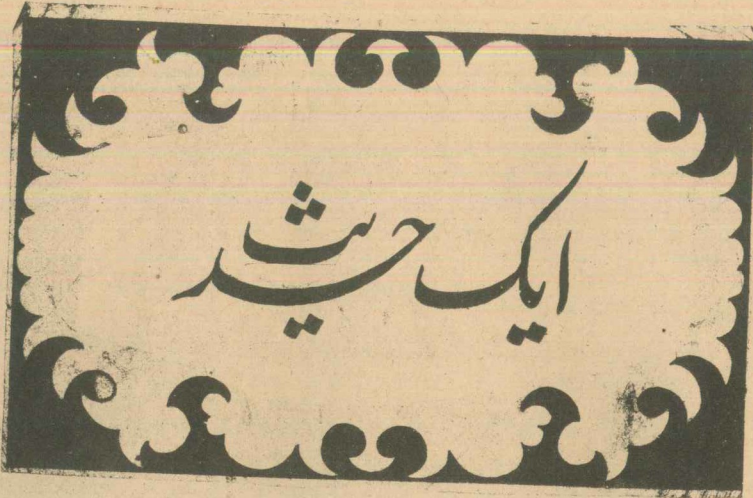 ایک حدیث